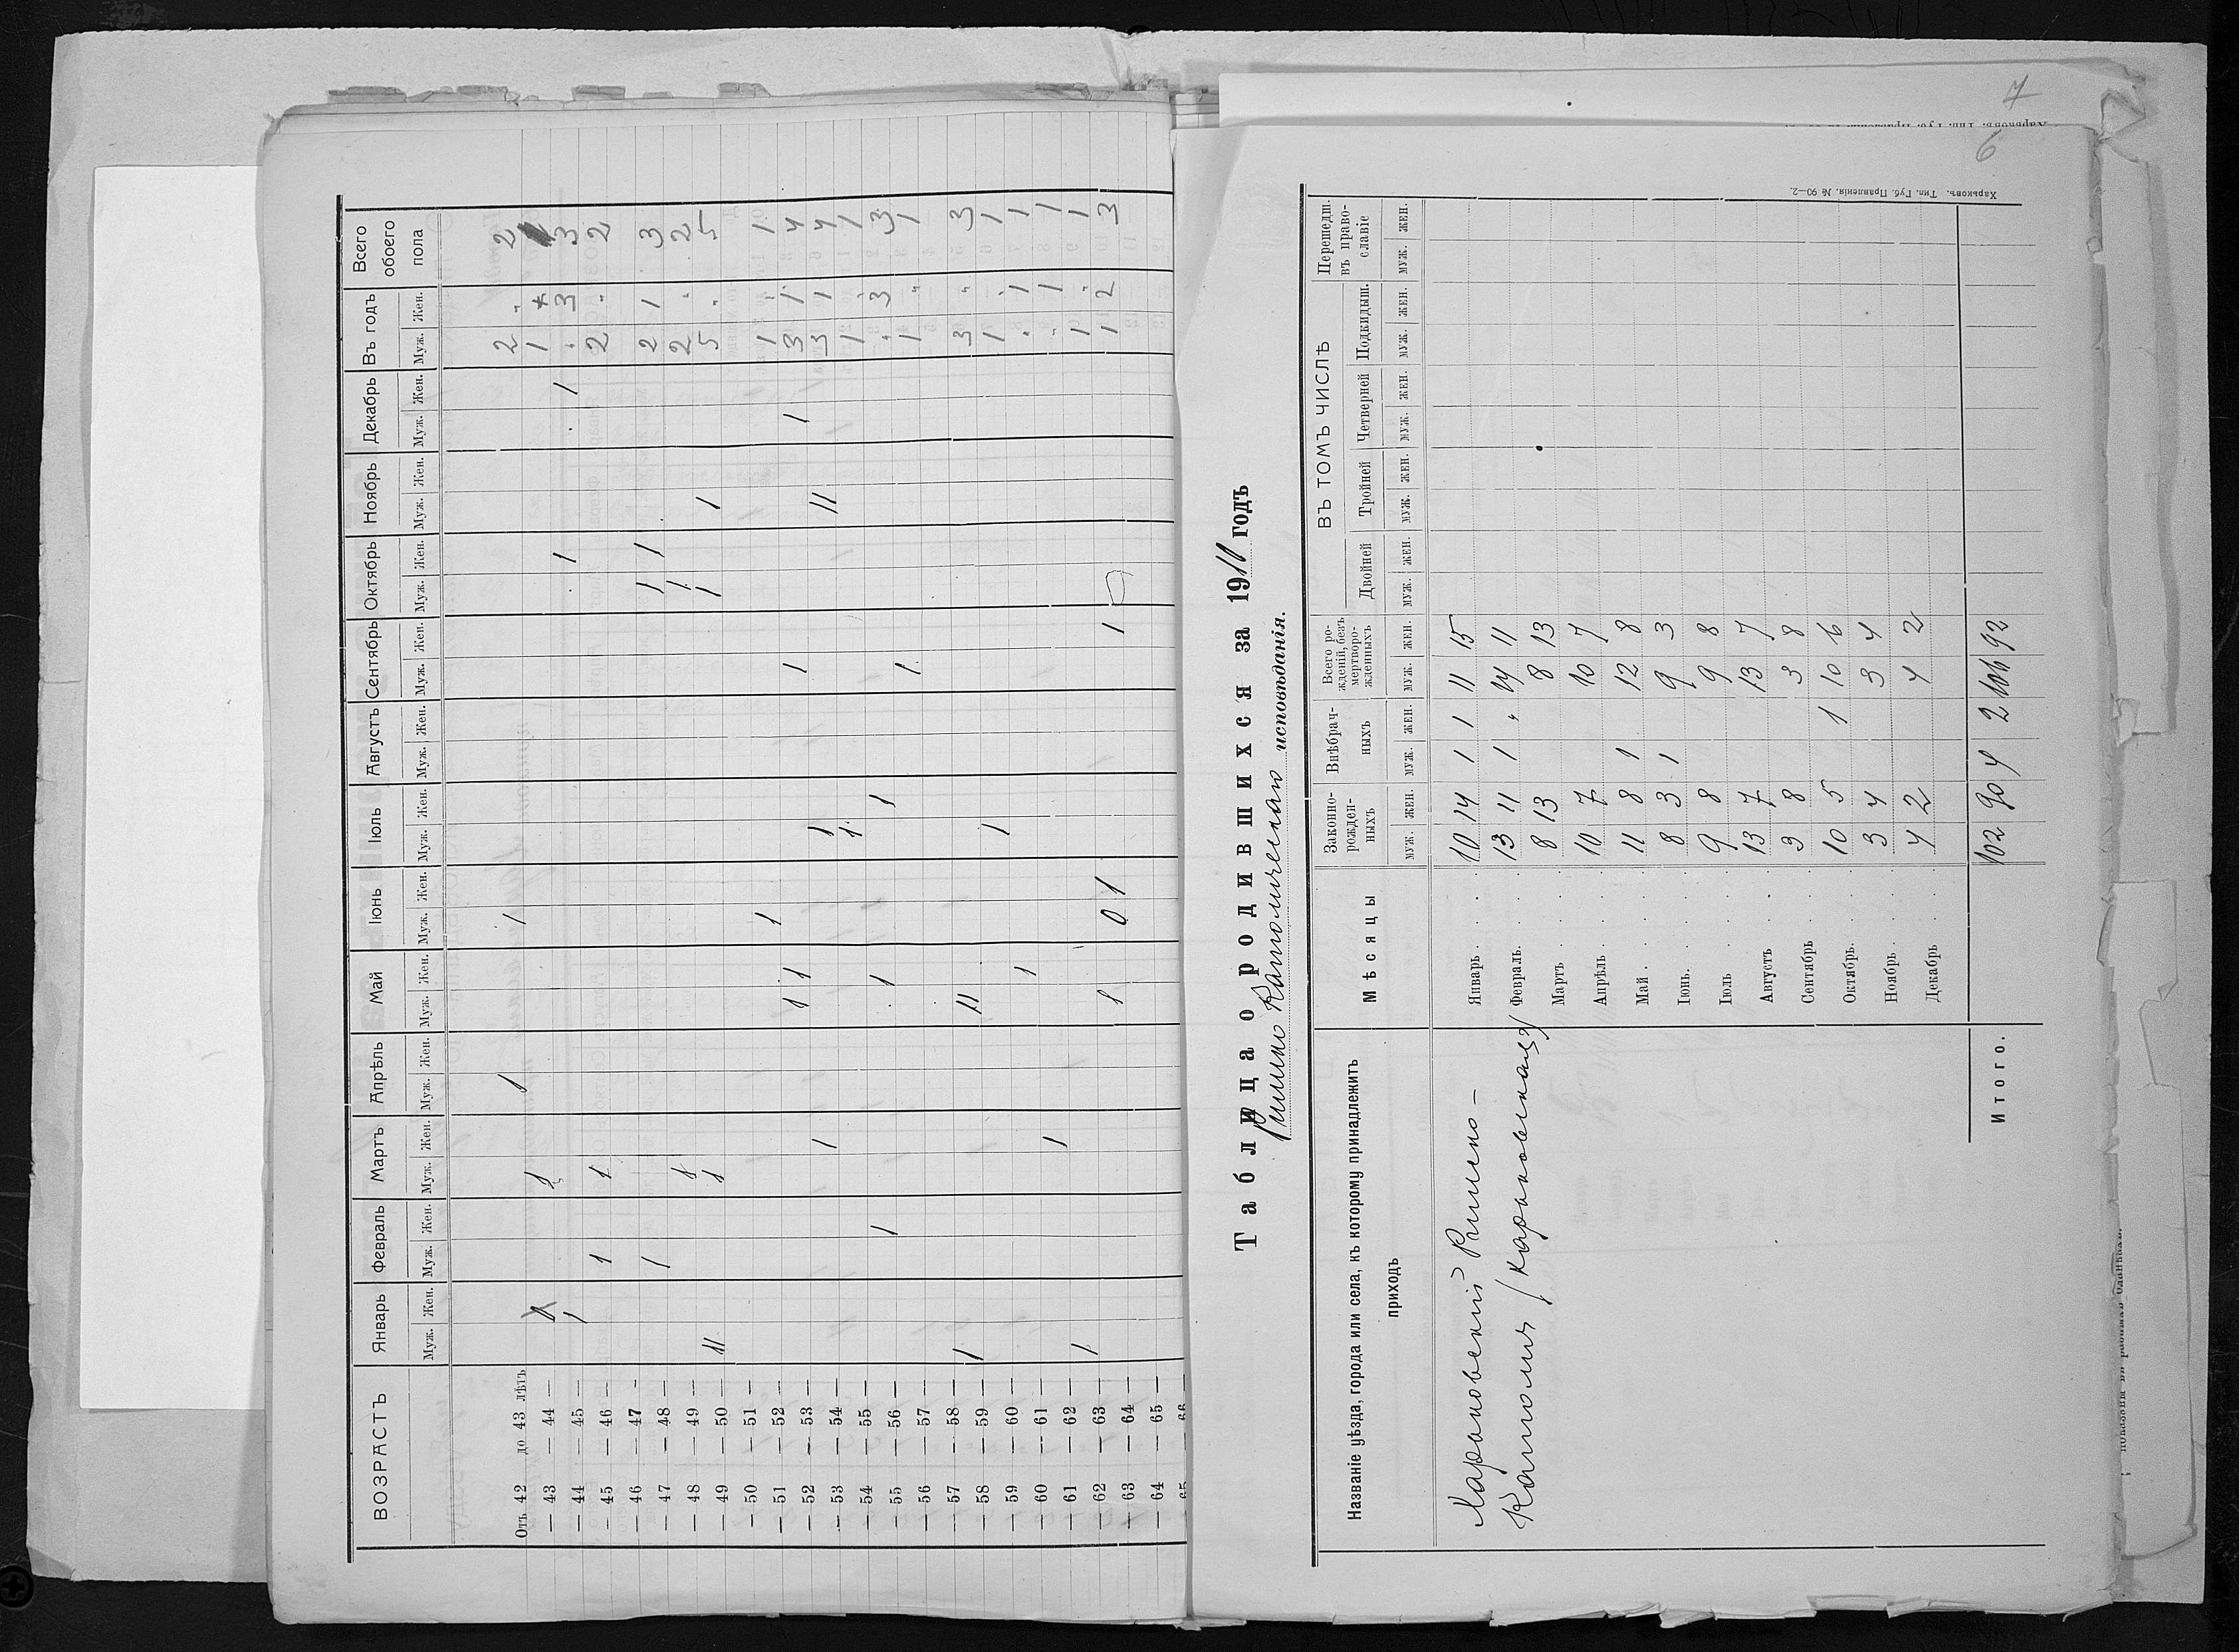 ВОЗРАСТЪ Январь Февраль Мартъ Апрѣль Май Іюнь Іюль Августъ Сентябрь Октябрь Ноябрь Декабрь Въ годъ Всего обоего пола
Муж. Жен. Муж. Жен. Муж. Жен. Муж. Жен. Муж. Жен. Муж. Жен. Муж. Жен. Муж. Жен. Муж. Жен. Муж. Жен. Муж. Жен. Муж. Жен. Муж. Жен.
Отъ 42 до 43 лѣтъ 1 1 2 „ 2
— 43 — 44 — 1 1
— 44 — 45 — 1 1 1 3 3
— 45 — 46 — 1 1 2 „ 2
— 46 — 47 - 1 1 1 2 1 3
— 47 — 48 — 1 1 2 „ 2
— 48 — 49 — 11 1 1 1 5 „ 5
— 49 — 50 —
— 50 — 51 — 1 1 „ 1
— 51 — 52 — 1 1 1 1 3 1 4
— 52 — 53 — 1 1 11 3 1 4
— 53 — 54 — 1 1 „ 1
— 54 — 55 — 1 1 1 „ 3 3
— 55 — 56 — 1 1 „ 1
— 56 — 57 —
— 57 — 58 — 1 11 3 „ 3
— 58 — 59 — 1 1 1
— 59 — 60 — 1 1 1
— 60 — 61 — 1 „ 1 1
— 61 — 62 — 1 1 „ 1
— 62 — 63 — 1 0 1 1 1 2 3
— 63 — 64 —
— 64 — 65 —
7
6
Таблица о родившихся за 1911 годъ
Римско Католическаго исповѣданія.
Названіе уѣзда, города или села, къ которому принадлежитъ приходъ
Мѣсяцы
Законно-рожден-ныхъ
Внѣбрач-ныхъ
Всего ро-жденій, безъ мертворо-жденныхъ
ВЪ ТОМЪ ЧИСЛѢ
Двойней Тройней Четверней Подкидыш.
Перешедш. въ право-славіе
муж. жен. муж. жен. муж. жен. муж. жен. муж. жен. муж. жен. муж. жен. муж. жен.
Харьковскій Римско-
Католич /харьковская/
Январь. 10 14 1 1 11 15
Февраль. 13 11 1 „ 14 11
Мартъ 8 13 8 13
Апрѣль 10 7 10 7
Май 11 8 1 12 8
Іюнь. 8 3 1 9 3
Іюль 9 8 9 8
Августъ 13 7 13 7
Сентябрь 3 8 3 8
Октябрь. 10 5 1 10 6
Ноябрь 3 4 3 4
Декабрь 4 2 4 2
Итого. 102 90 4 2 106 92
Харьковъ. Тип. Губ. Правленія. № 90—2.